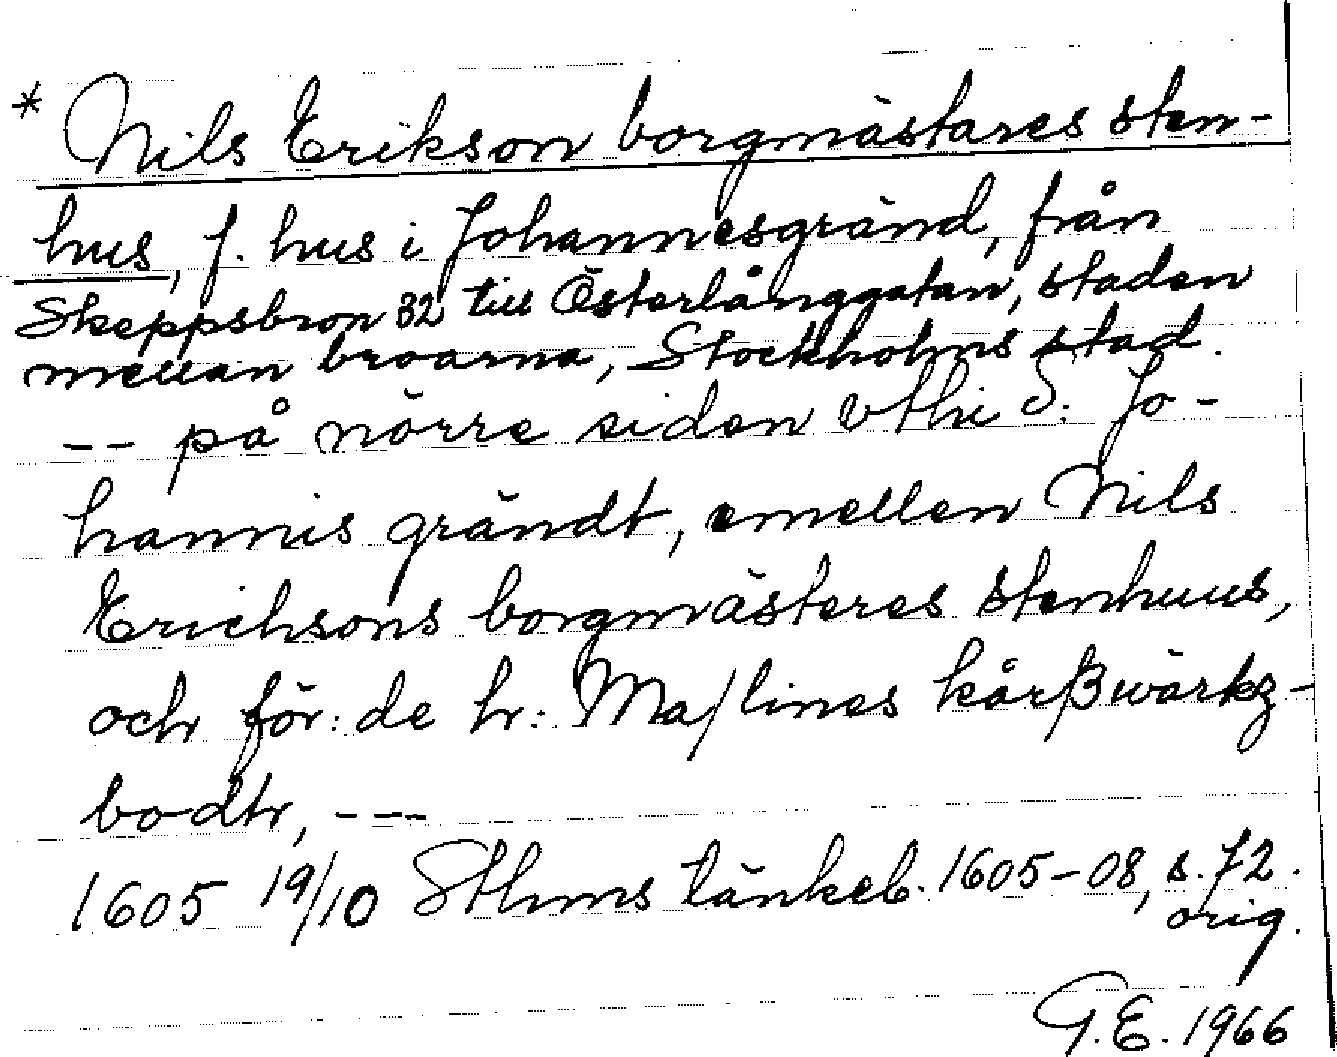 * Nils Erikson borgmästares sten-
hus, f. hus i Johannesgränd, från
Skeppsbron 32 till Österlånggatan, staden
mellan broarna, Stockholms stad.
-- på nörre siden vthi S. Jo-
hannis grändt, emellen Nils
Erichsons borgmästeres stenhuus,
och för: de hr: Ma/lines kårßwärkz-
bodhr, ---
1605 19/10 Sthms tänkeb. 1605-08, s. 72.
orig.
G.E. 1966